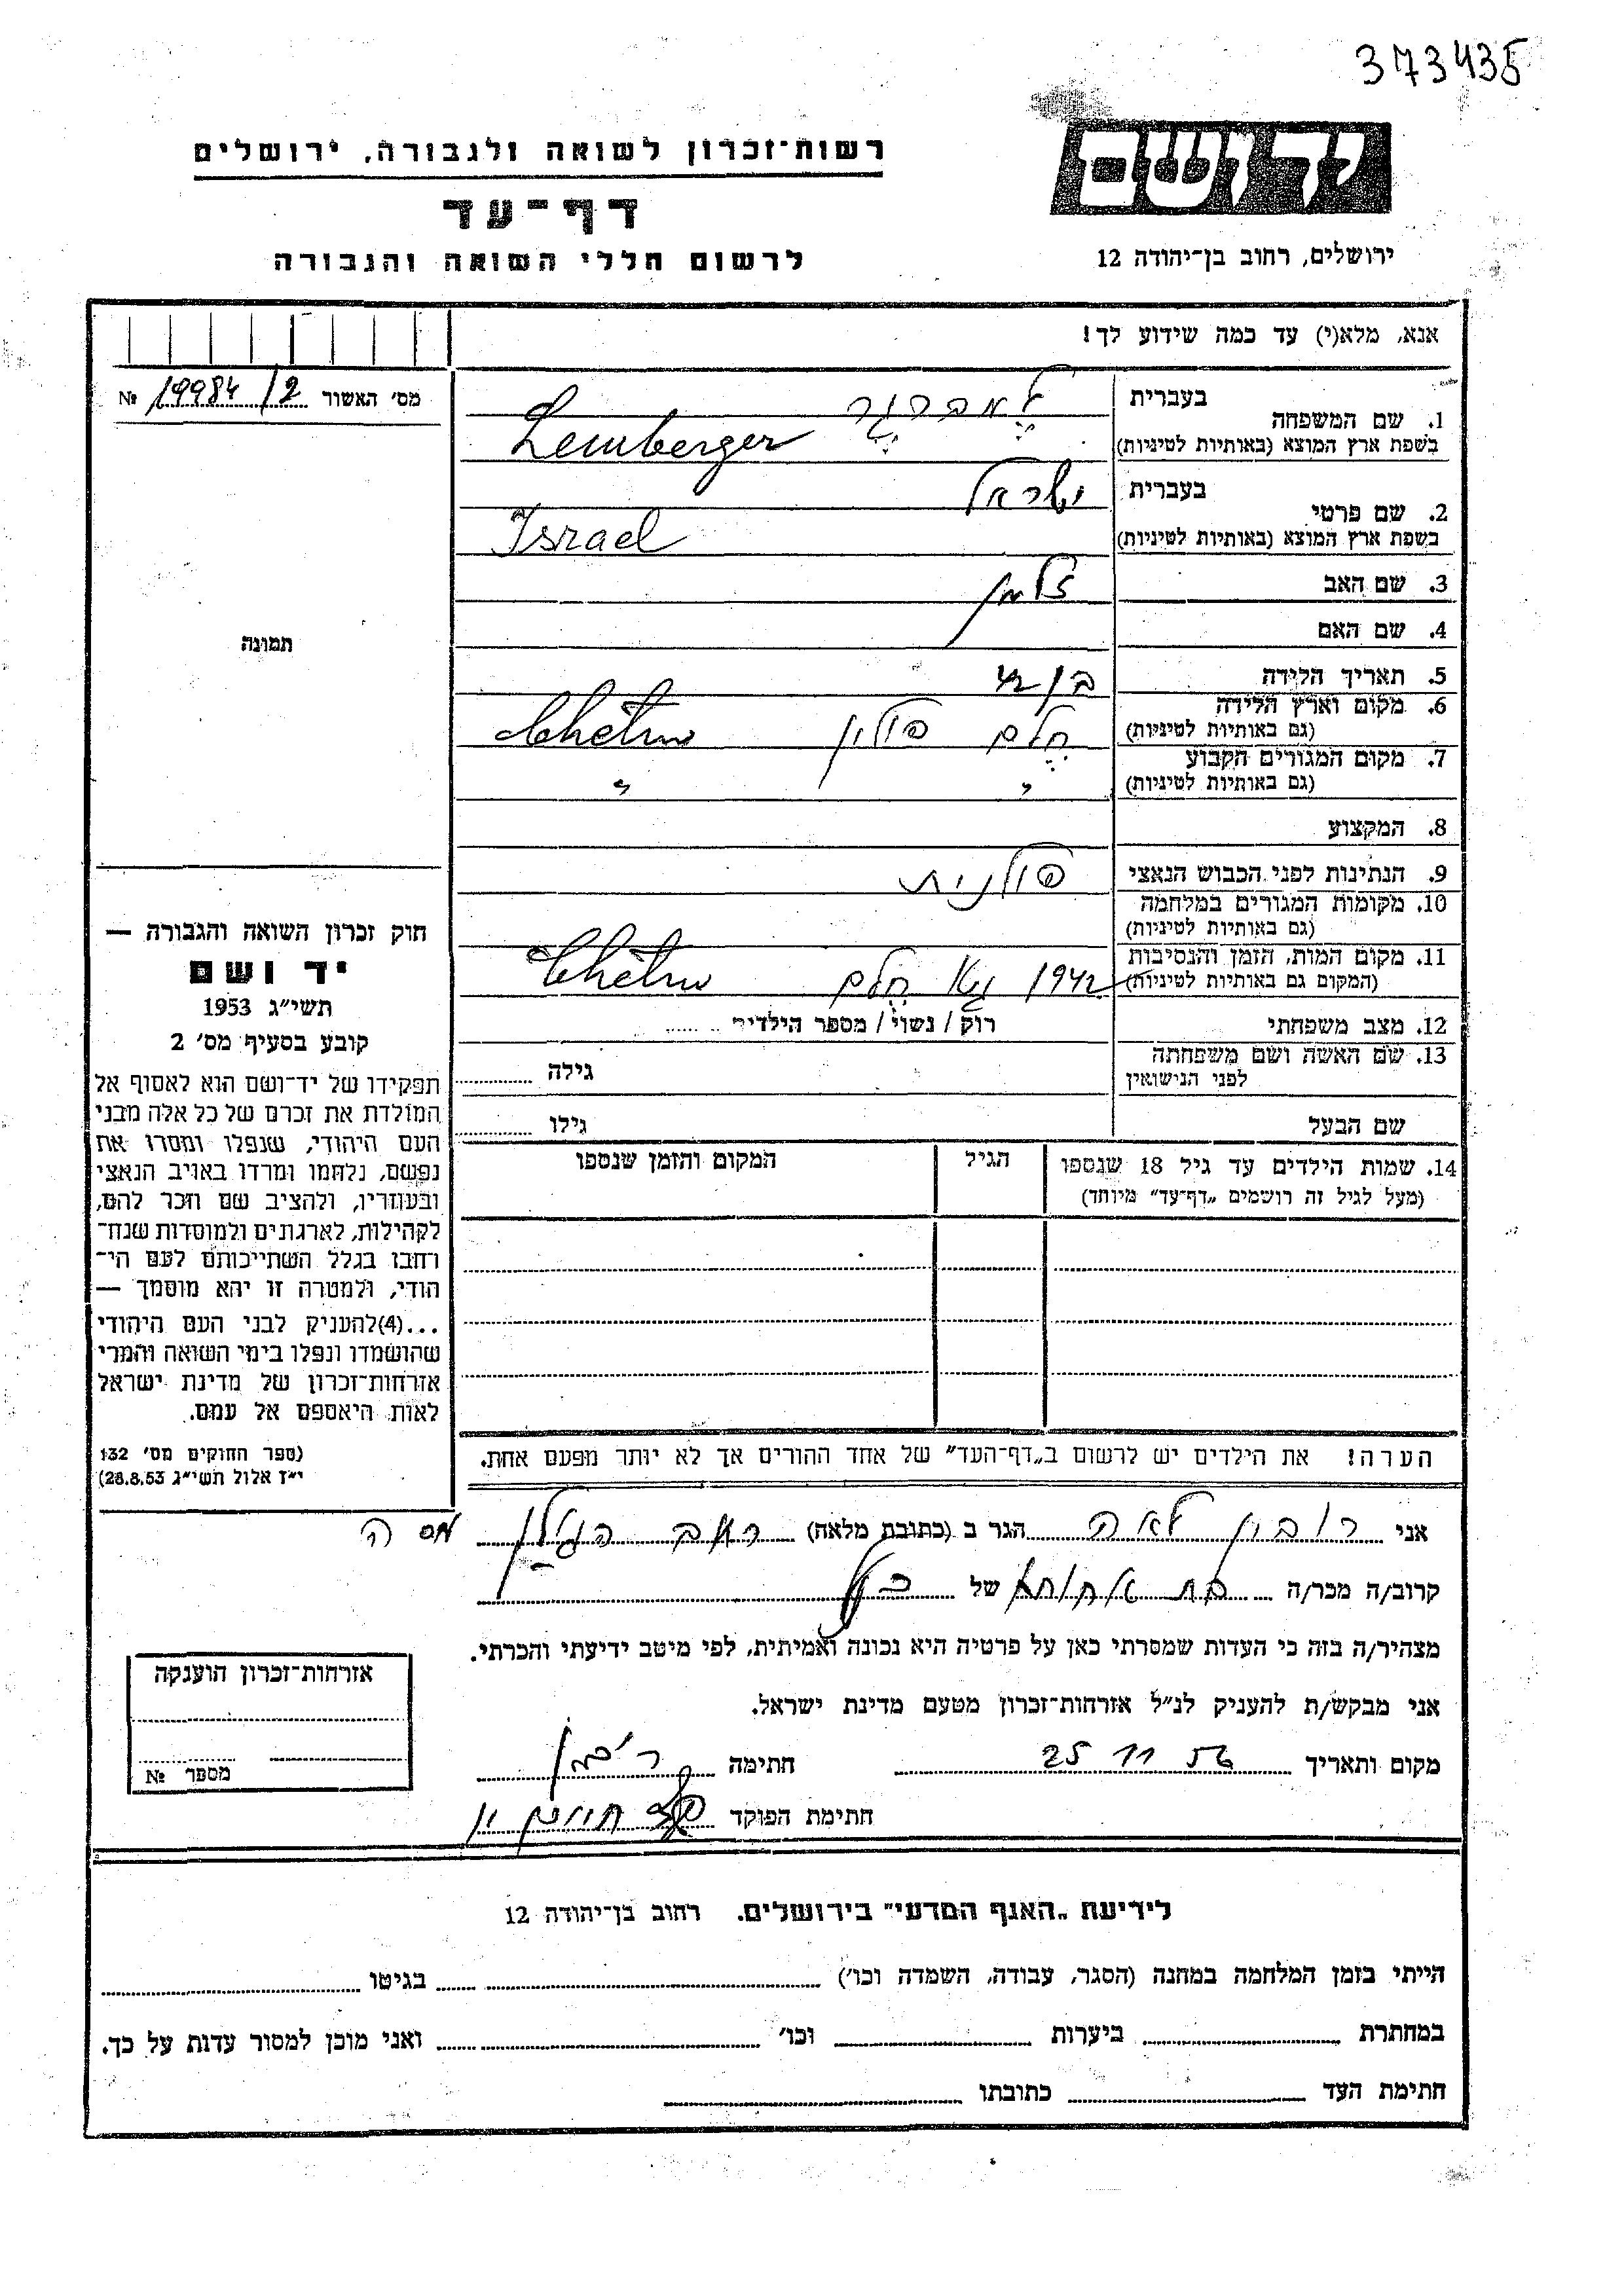 373435
יד ושם
רשות־זכרון לשואה ולגבורה, ירושלים
דף־עד
ירושלים, רחוב בן־יהודה 12
לרשום חללי השואה והגבורה
אנא, מלא(י) עד כמה שידוע לך!
מס׳ האשור 19984/2 №
1. שם המשפחה
בעברית לֶמברגֶר
בשפת ארץ המוצא (באותיות לטיניות) Lemberger
2. שם פרטי
בעברית ישראל
בשפת ארץ המוצא (באותיות לטיניות) Israel
3. שם האב זלמן
4. שם האם
תמונה
5. תאריך הלידה בן
6. מקום וארץ הלידה
(גם באותיות לטיניות) חלם פולין Chełm
7. מקום המגורים הקבוע
(גם באותיות לטיניות) " "
8. המקצוע
9. הנתינות לפני הכבוש הנאצי פולנית
10. מקומות המגורים במלחמה
(גם באותיות לטיניות)
11. מקום המות, הזמן והנסיבות
(המקום גם באותיות לטיניות) 1942 חלם Chełm
12. מצב משפחתי רוק / נשוי / מספר הילדים
13. שם האשה ושם משפחתה
לפני הנישואין גילה
שם הבעל גילו
14. שמות הילדים עד גיל 18 שנספו הגיל המקום והזמן שנספו
(מעל לגיל זה רושמים „דף־עד״ מיוחד)
הערה! את הילדים יש לרשום ב„דף־העד״ של אחד ההורים אך לא יותר מפעם אחת.
חוק זכרון השואה והגבורה —
יד ושם
תשי״ג 1953
קובע בסעיף מס׳ 2
תפקידו של יד־ושם הוא לאסוף אל
המולדת את זכרם של כל אלה מבני
העם היהודי, שנפלו ומסרו את
נפשם, נלחמו ומרדו באויב הנאצי
ובעוזריו, ולהציב שם וזכר להם,
לקהילות, לארגונים ולמוסדות שנח־
רבו בגלל השתייכותם לעם הי־
הודי, ולמטרה זו יהא מוסמך —
...(4)להעניק לבני העם היהודי
שהושמדו ונפלו בימי השואה והמרי
אזרחות־זכרון של מדינת ישראל
לאות היאספם אל עמם.
(ספר החוקים מס׳ 132
י״ז אלול תשי״ג 28.8.53)
אני רובין לאה הגר ב (כתובת מלאה)
קרוב/ה מכר/ה בת של
מצהיר/ה בזה כי העדות שמסרתי כאן על פרטיה היא נכונה ואמיתית, לפי מיטב ידיעתי והכרתי.
אני מבקש/ת להעניק לנ״ל אזרחות־זכרון מטעם מדינת ישראל.
מקום ותאריך 25 11 56 חתימה
חתימת הפוקד
אזרחות־זכרון הוענקה
מספר №
לידיעת „האגף המדעי״ בירושלים. רחוב בן־יהודה 12
הייתי בזמן המלחמה במחנה (הסגר, עבודה, השמדה וכו׳) בגיטו
במחתרת ביערות וכו׳ ואני מוכן למסור עדות על כך.
חתימת העד כתובתו